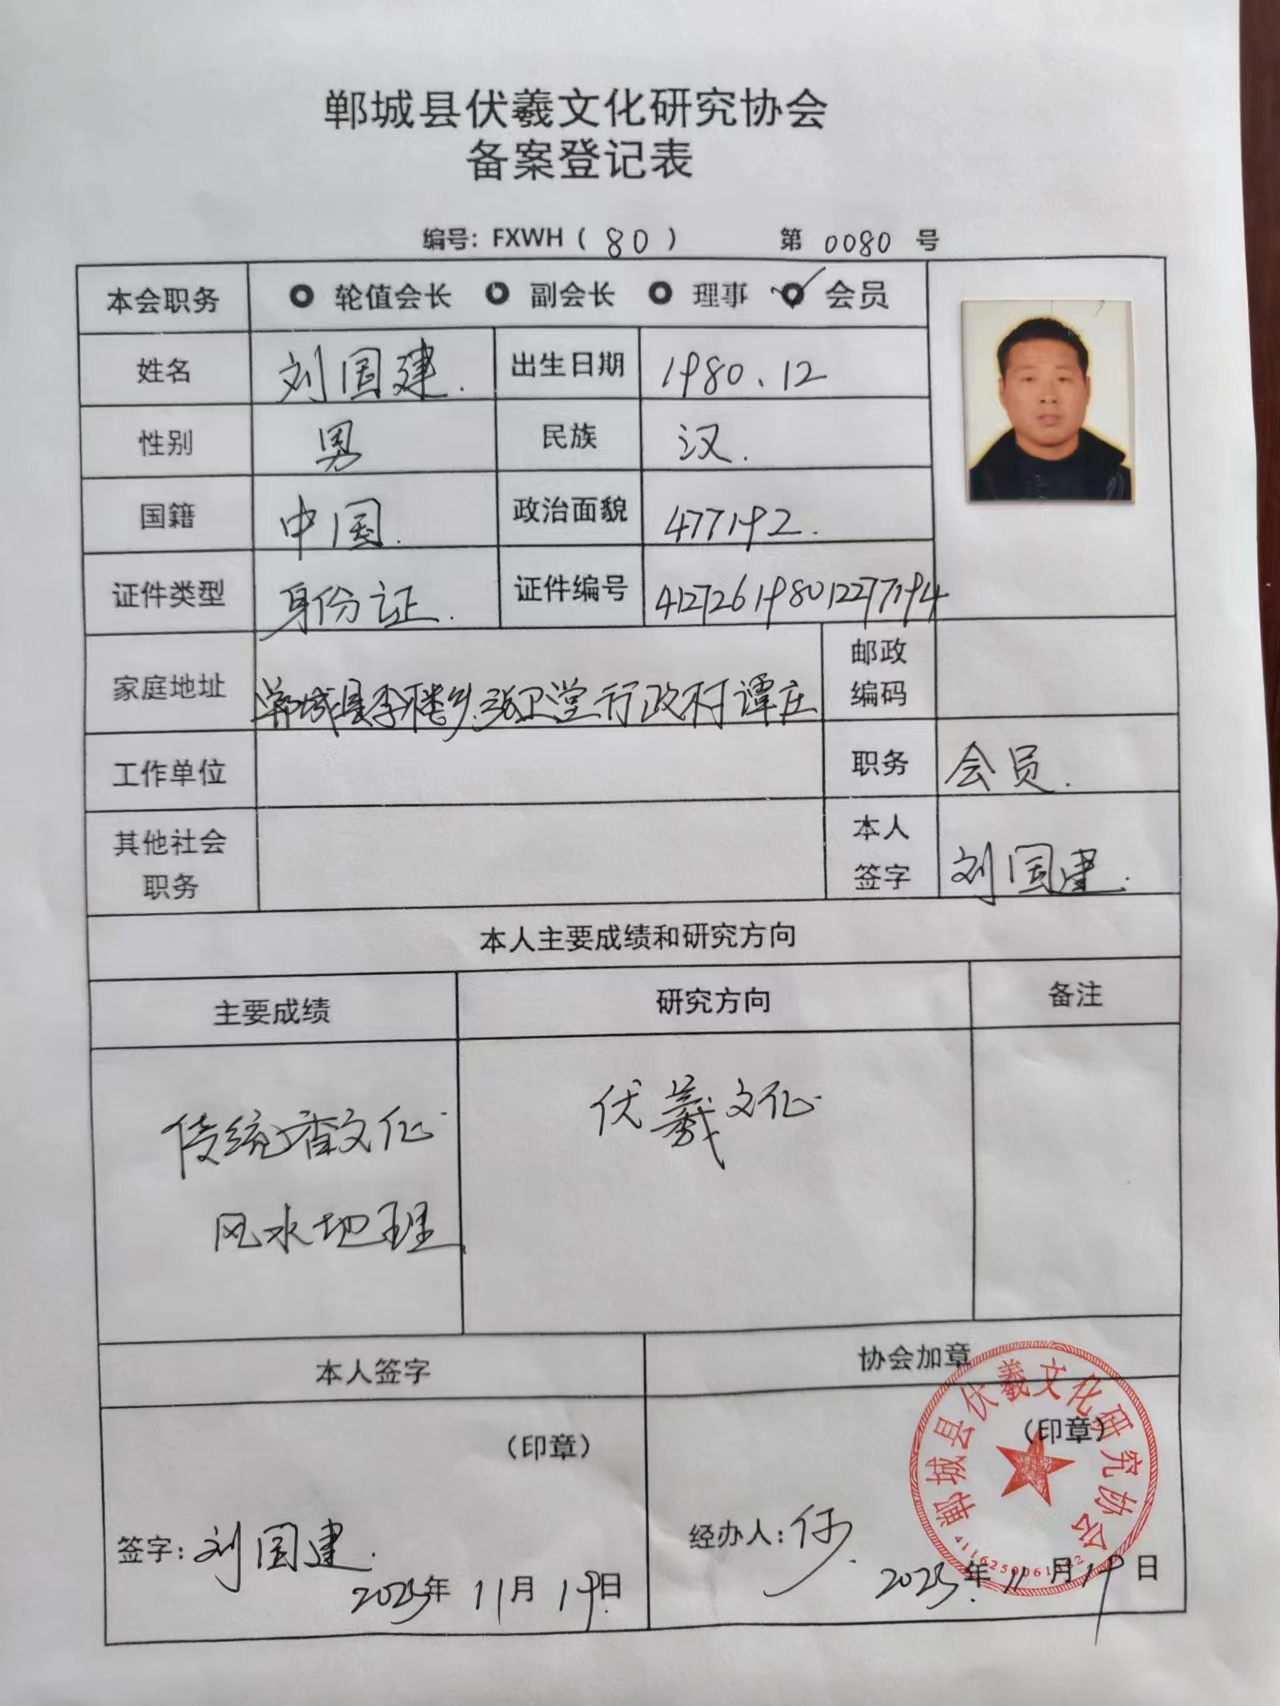 郸城县伏羲文化研究协会
备案登记表
编号：FXWH（80） 第 0080 号
本会职务 轮值会长 副会长 理事 会员
姓名 刘国建. 出生日期 1980.12
性别 男 民族 汉.
国籍 中国. 政治面貌 477192.
证件类型 身份证. 证件编号 412726198012277194
家庭地址 郸城县李楼乡张卫堂行政村谭庄 邮政编码
工作单位 职务 会员.
其他社会职务 本人签字 刘国建.
本人主要成绩和研究方向
主要成绩 研究方向 备注
传统香文化 伏羲文化
风水地理
本人签字 协会加章
（印章） （印章）
签字：刘国建. 经办人：
2025年 11月 19日 2025年 11月 19日
郸城县伏羲文化研究协会